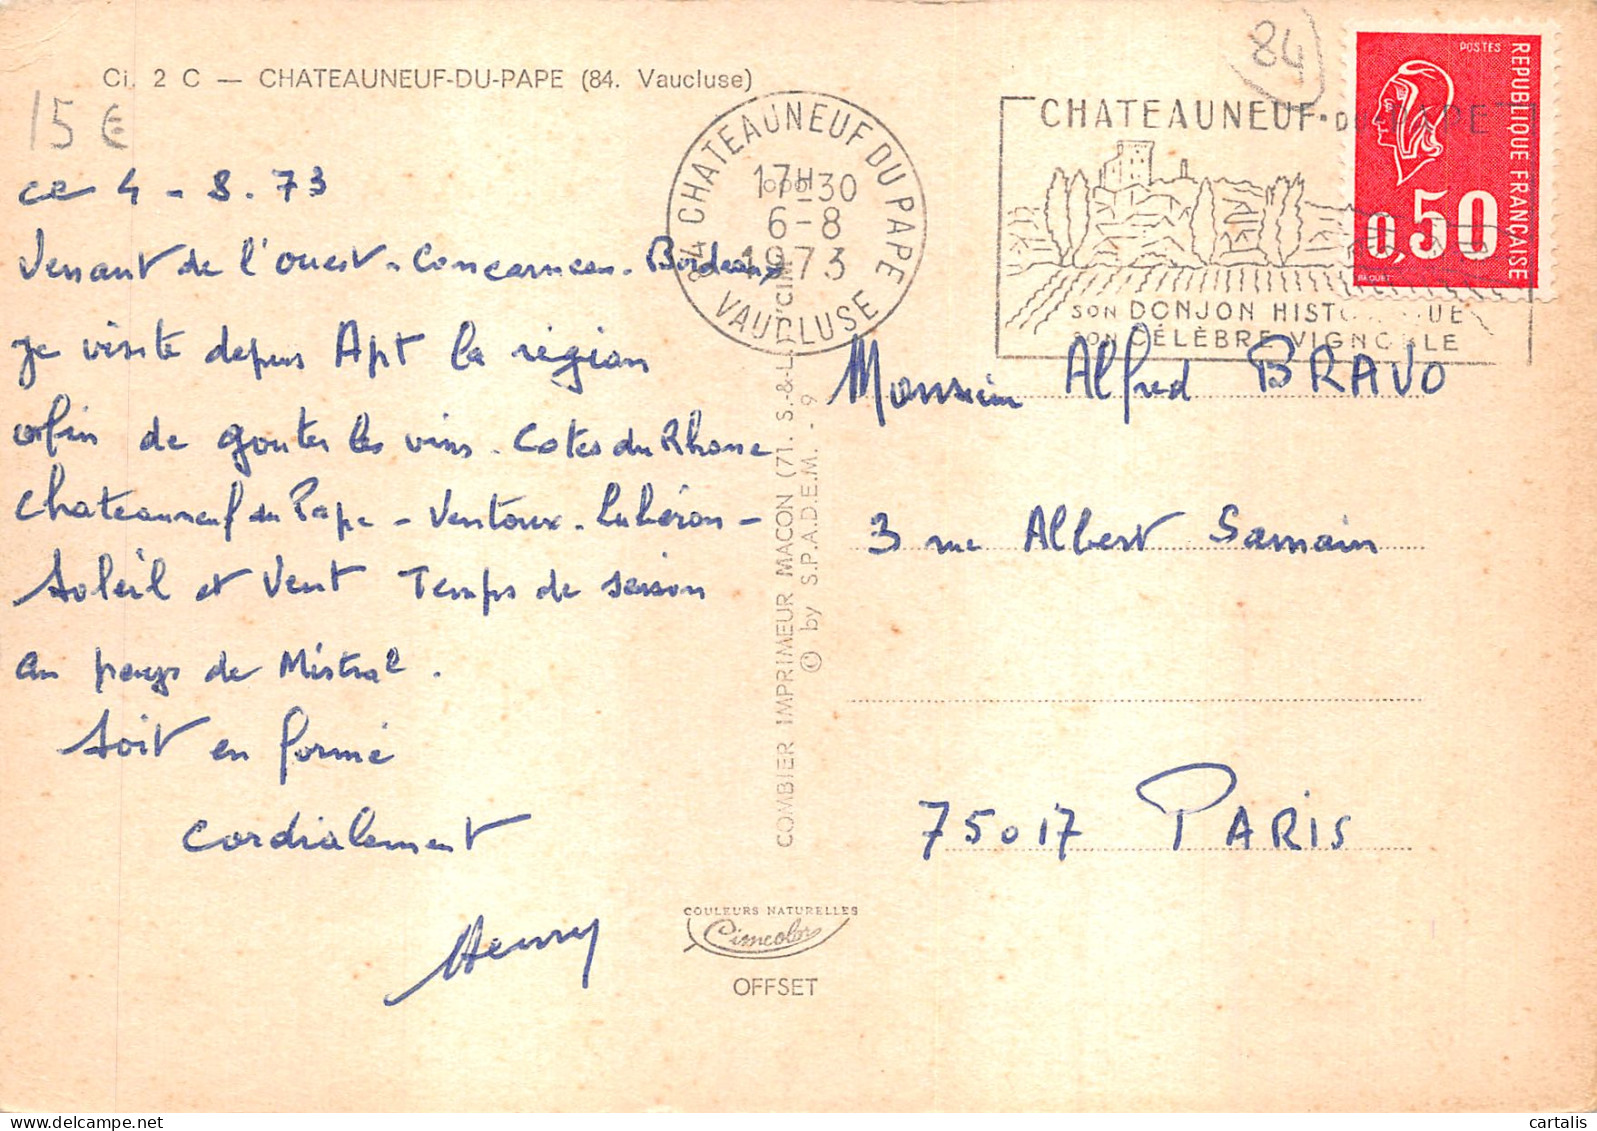 Ci. 2 C — CHATEAUNEUF-DU-PAPE (84. Vaucluse)
15 €
84
ce 4 - 8. 73
Venant de l'ouest - Concarneau - Bordeaux
je visite depuis Apt la région
afin de gouter les vins. Cotes du Rhone
Chateauneuf du Pape - Ventoux - Lubéron -
Soleil et Vent Temps de saison
au pays de Mistral.
Soit en forme
Cordialement
Henry
84 CHATEAUNEUF DU PAPE
17H30
6-8
1973
VAUCLUSE
CHATEAUNEUF·DU PAPE
SON DONJON HISTORIQUE
SON CÉLÈBRE VIGNOBLE
POSTES
REPUBLIQUE FRANÇAISE
0,50
BEQUET
Monsieur Alfred BRAVO
3 rue Albert Samain
75017 PARIS
COMBIER IMPRIMEUR MACON (71. S.-&-L.) "CIM"
© by S.P.A.D.E.M. - 9
COULEURS NATURELLES
Cimcolor
OFFSET
cartalis sur www.delcampe.net